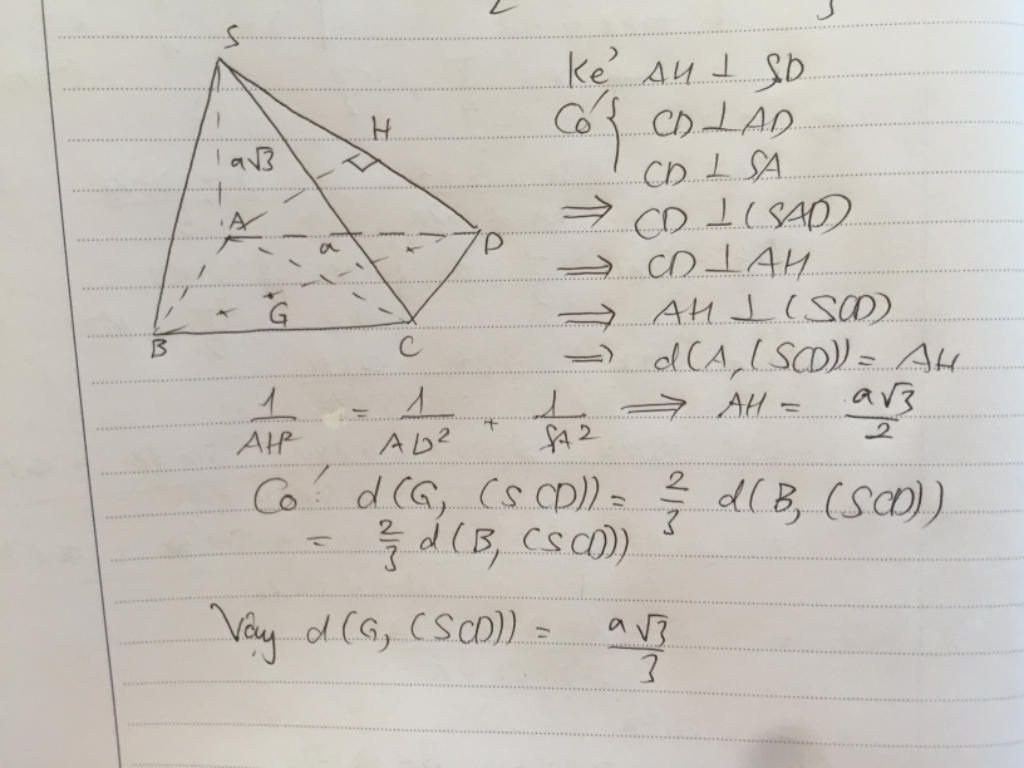 S
Kẻ AH ⊥ SD
H
Có { CD ⊥ AD
a√3
CD ⊥ SA
A
⇒ CD ⊥ (SAD)
a
D
⇒ CD ⊥ AH
G
⇒ AH ⊥ (SCD)
B
C
⇒ d(A, (SCD)) = AH
1/AH² = 1/AD² + 1/SA² ⇒ AH = a√3/2
Có: d(G, (SCD)) = 2/3 d(B, (SCD))
= 2/3 d(B, (SCD))
Vậy d(G, (SCD)) = a√3/3